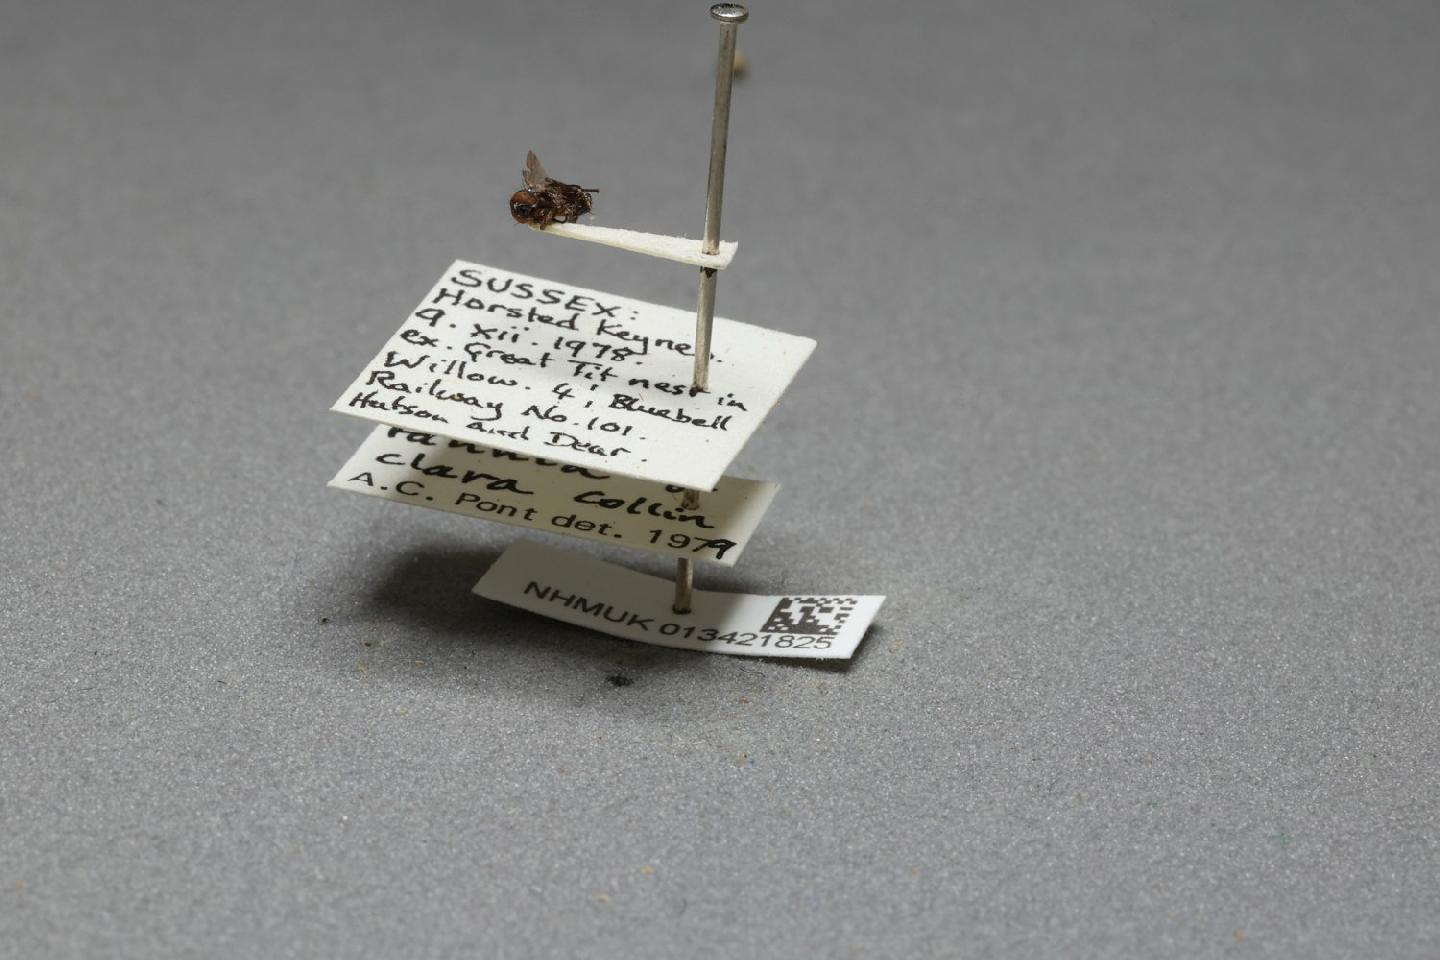 SUSSEX:
Horsted Keynes.
9. xii. 1978.
ex. Great Tit nest in
Willow. 4', Bluebell
Railway No. 101.
Hutson and Dear.
clara Collin
A.C. Pont det. 1979
NHMUK 013421825